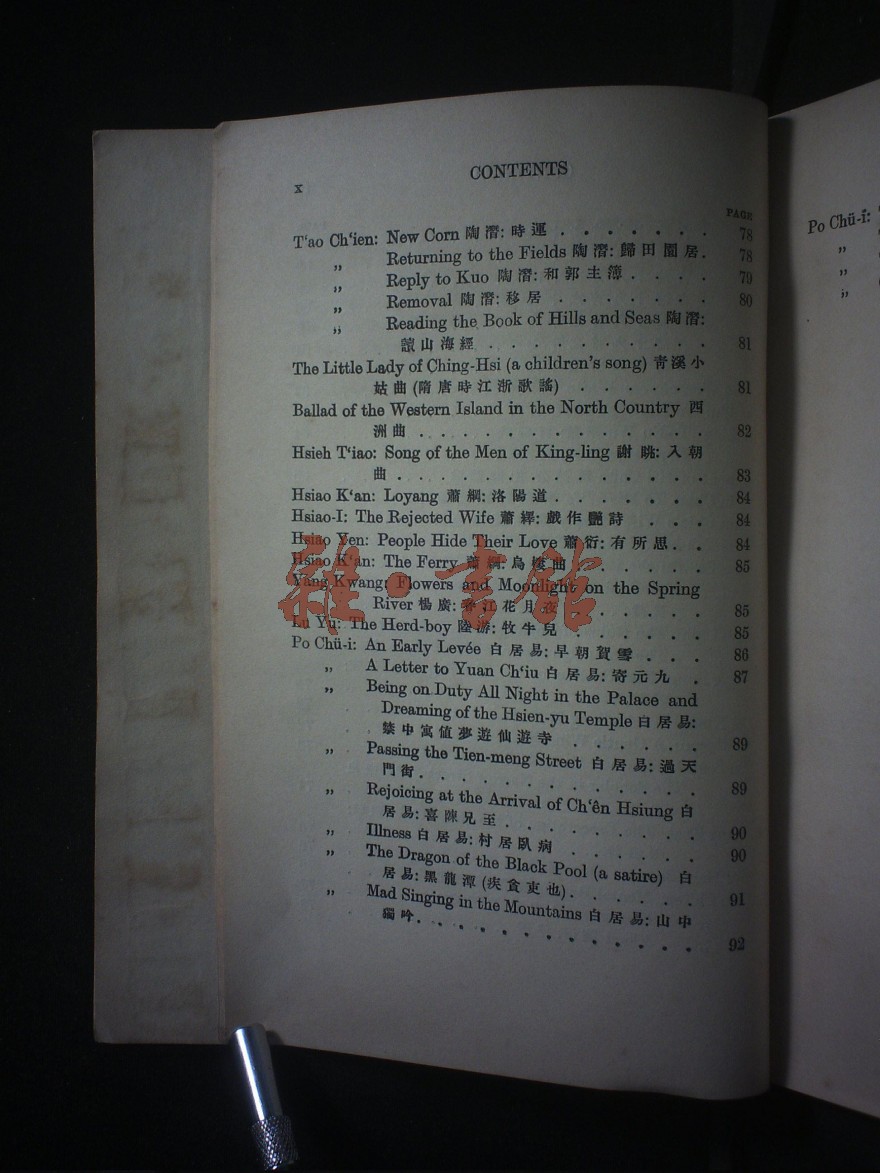 x
CONTENTS
PAGE
T‘ao Ch‘ien: New Corn 陶潛: 時運 . . . . . . . 78
„ Returning to the Fields 陶潛: 歸田園居. 78
„ Reply to Kuo 陶潛: 和郭主簿. . . . 79
„ Removal 陶潛: 移居 . . . . . . . 80
„ Reading the Book of Hills and Seas 陶潛:
讀山海經 . . . . . . . . . . 81
The Little Lady of Ching-Hsi (a children's song) 青溪小
姑曲 (隋唐時江浙歌謠) . . . . . . 81
Ballad of the Western Island in the North Country 西
洲曲 . . . . . . . . . . . . . 82
Hsieh T‘iao: Song of the Men of King-ling 謝眺: 入朝
曲 . . . . . . . . . . . . . . 83
Hsiao K‘an: Loyang 蕭綱: 洛陽道 . . . . . . . 84
Hsiao-I: The Rejected Wife 蕭繹: 戲作艷詩 . . . . 84
Hsiao Yen: People Hide Their Love 蕭衍: 有所思. . 84
Hsiao K‘an: The Ferry 蕭綱: 烏棲曲 . . . . . . 85
Yang Kwang: Flowers and Moonlight on the Spring
River 楊廣: 春江花月夜 . . . . . . 85
Lu Yu: The Herd-boy 陸游: 牧牛兒 . . . . . . 85
Po Chü-i: An Early Levée 白居易: 早朝賀雪 . . . 86
„ A Letter to Yuan Ch‘iu 白居易: 寄元九 . 87
„ Being on Duty All Night in the Palace and
Dreaming of the Hsien-yu Temple 白居易:
禁中寓値夢遊仙遊寺 . . . . . . 89
„ Passing the Tien-meng Street 白居易: 過天
門街. . . . . . . . . . . . . 89
„ Rejoicing at the Arrival of Ch‘ên Hsiung 白
居易: 喜陳兄至 . . . . . . . . . 90
„ Illness 白居易: 村居臥病 . . . . . . 90
„ The Dragon of the Black Pool (a satire) 白
居易: 黑龍潭 (疾貪吏也) . . . . . . 91
„ Mad Singing in the Mountains 白居易: 山中
獨吟. . . . . . . . . . . . . 92
Po Chü-i:
„
„
„
雜·書館